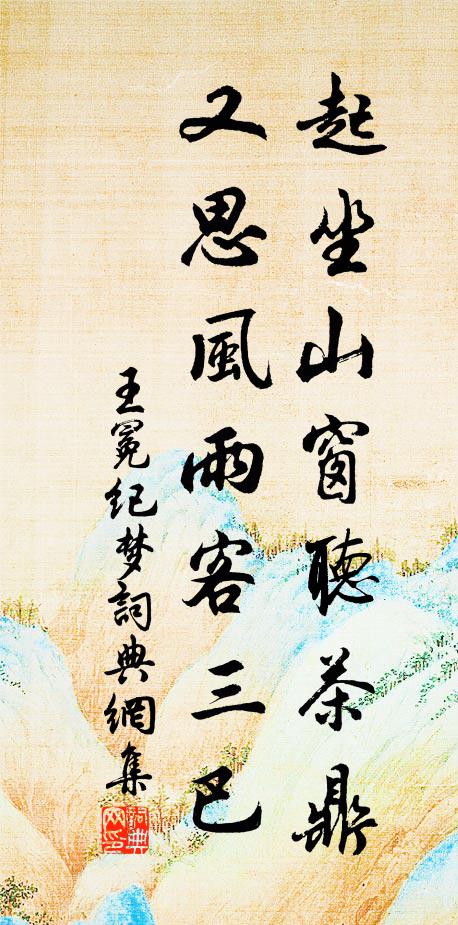 起坐山窗聽茶鼎
又思風雨客三巴
王冕纪梦詞典網集
詞典網印